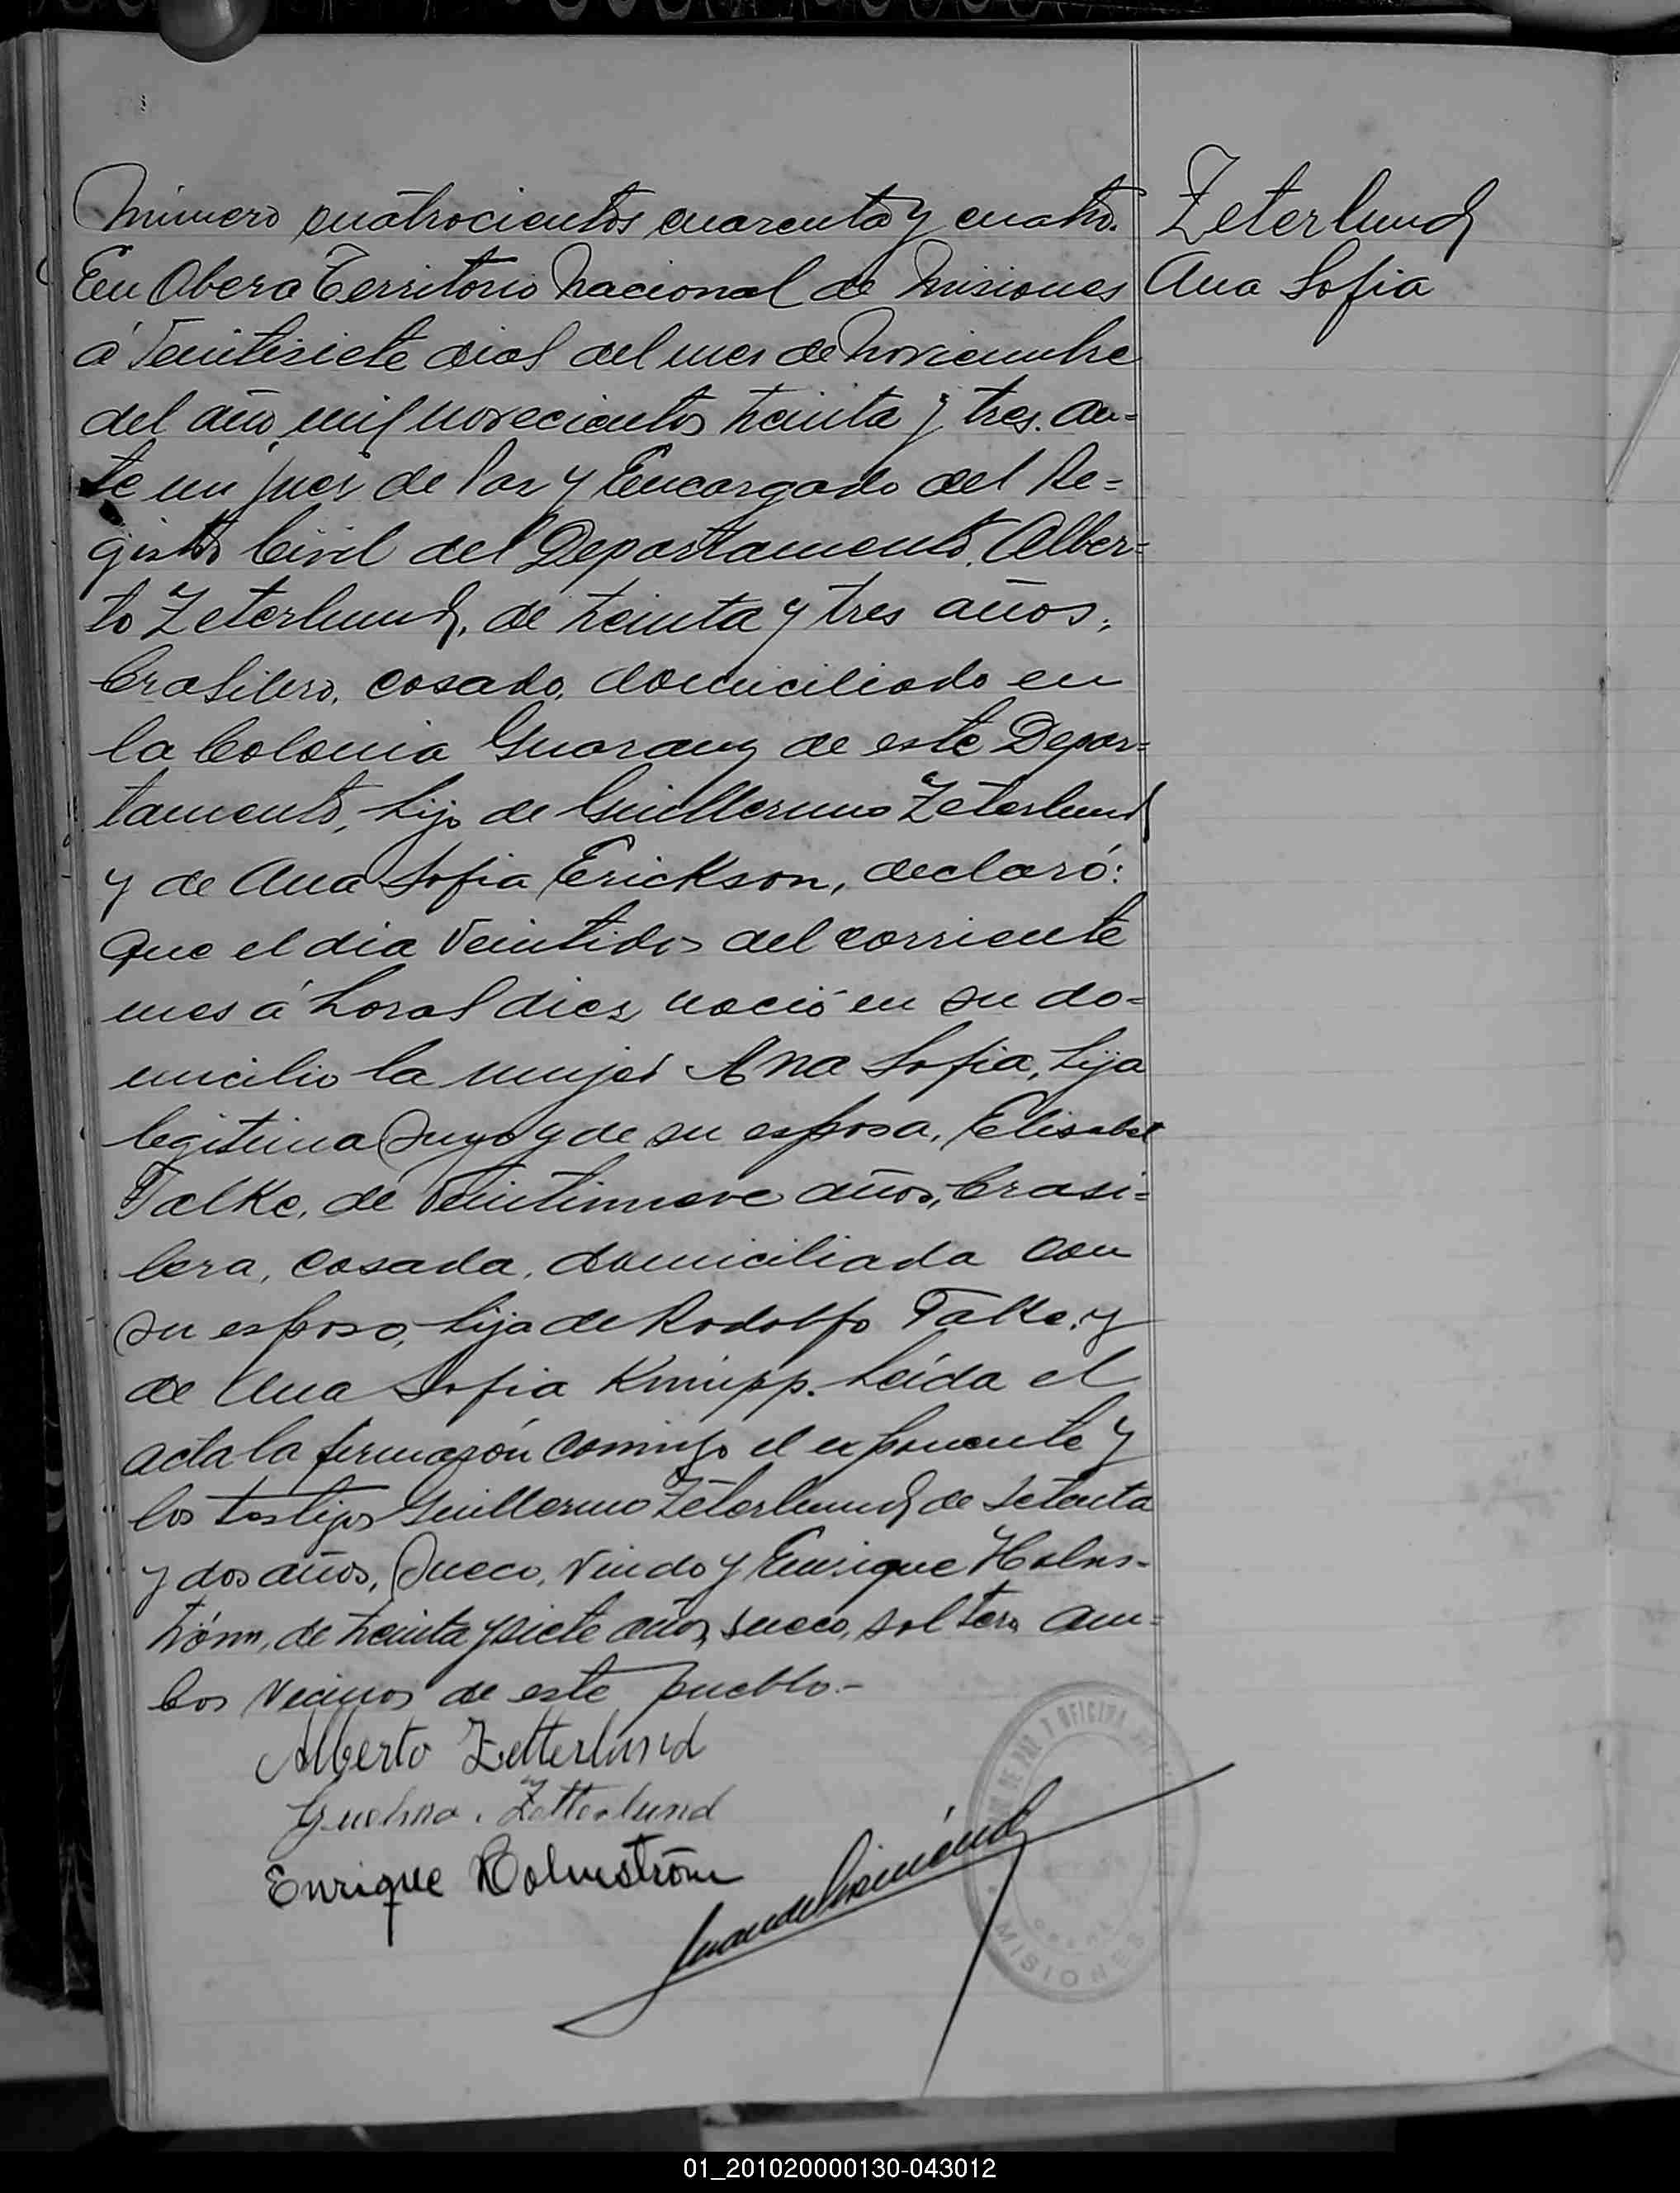 Número cuatrocientos cuarenta y cuatro.
Zeterlund
En Obera Territorio Nacional de Misiones
Ana Sofia
á veintisiete dias del mes de Noviembre
del año mil novecientos treinta y tres. an=
te mi Juez de Paz y Encargado del Re=
gistro Civil del Departamento, Alber=
to Zeterlund, de treinta y tres años,
brasilero, casado, domiciliado en
la Colonia Guarany de este Depar=
tamento, hijo de Guillermo Zeterlund
y de Ana Sofia Erickson, declaró:
Que el dia veintidos del corriente
mes á horas diez nació en su do=
micilio la mujer Ana Sofia, hija
legitima suya y de su esposa, Elisabet
Talke, de veintinueve años, brasi=
lera, casada, domiciliada con
su esposo, hija de Rodolfo Talke, y
de Ana Sofia Knupp. Leída el
acta la firmarón conmigo el exponente y
los testigos Guillermo Zeterlund, de setenta
y dos años, Sueco, viudo y Enrique Holms-
tröm, de treinta y siete años, sueco, soltero am=
bos vecinos de este pueblo.-
Alberto Zetterlund
Zetterlund
Enrique Holmström
MISIONES
01_201020000130-043012